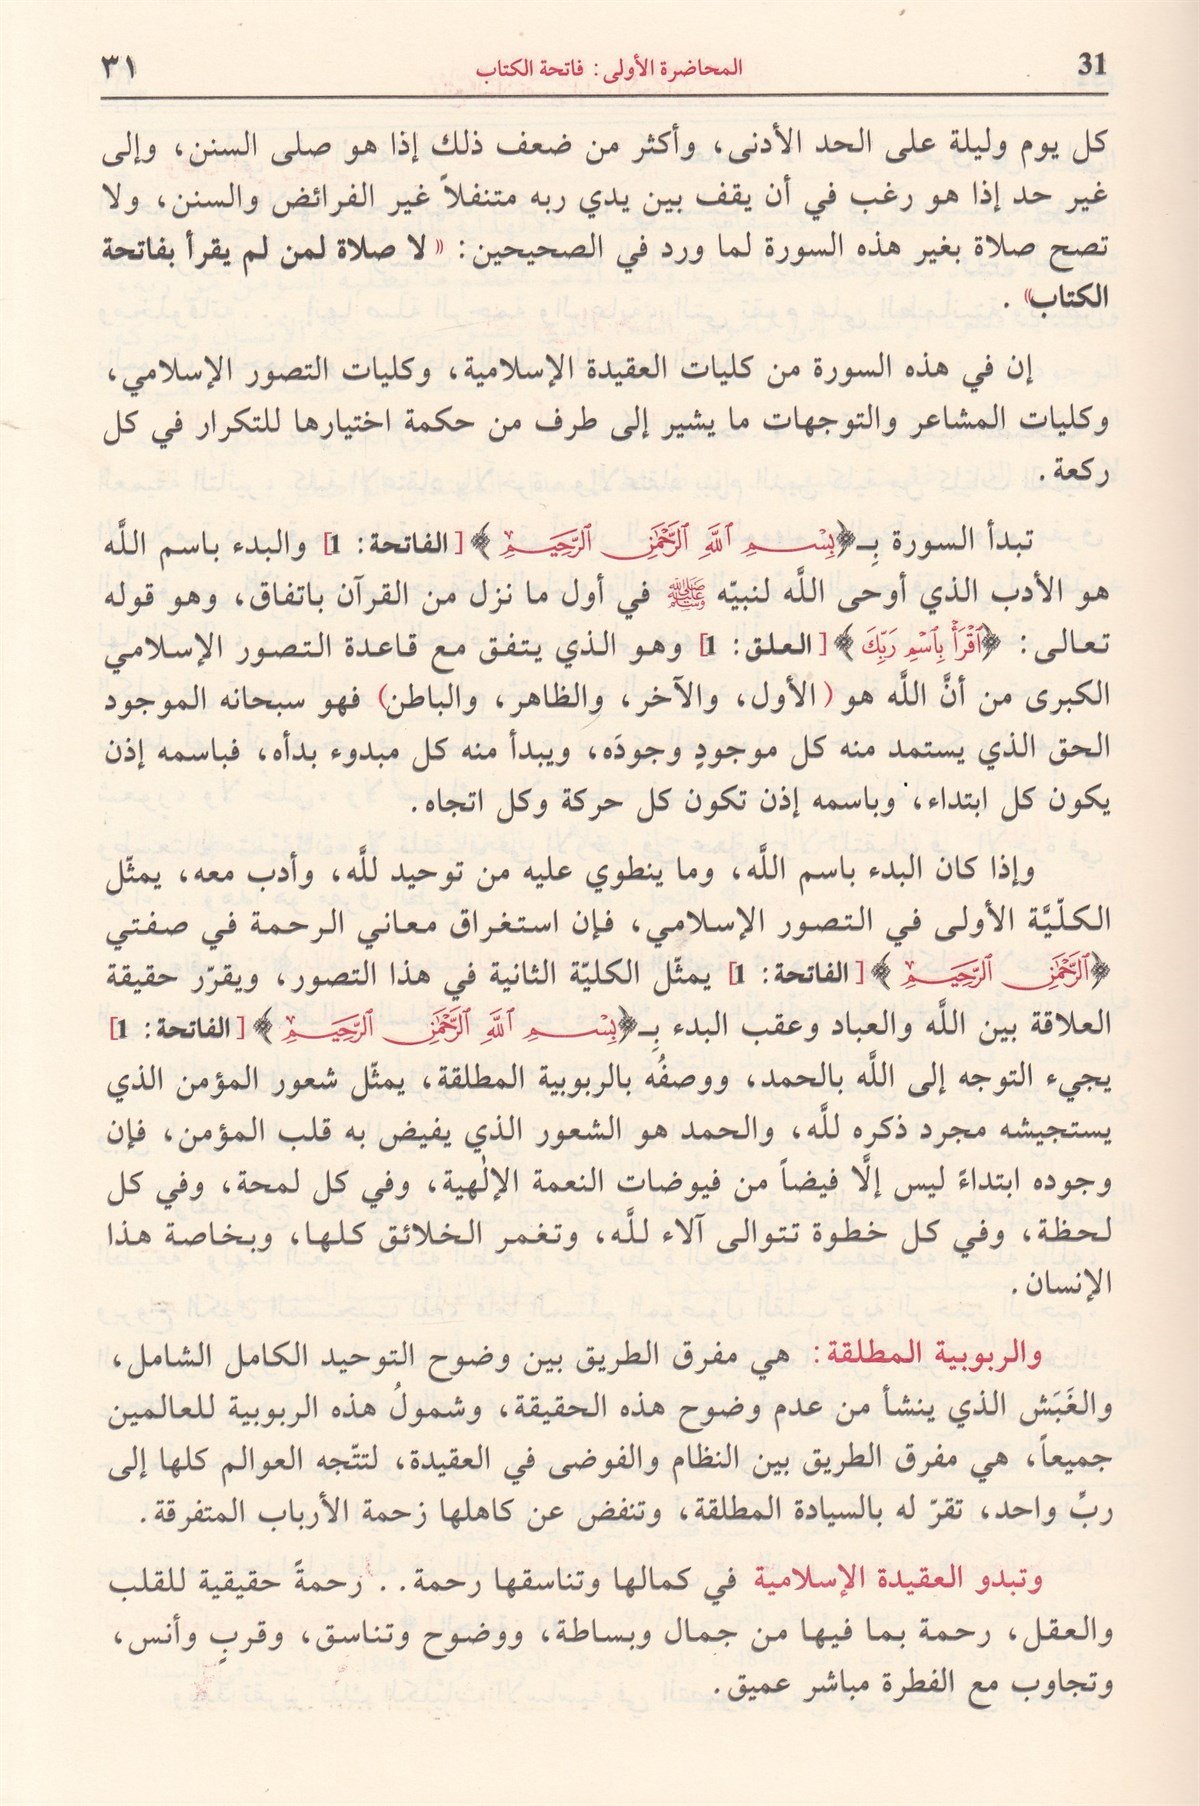 31
المحاضرة الأولى: فاتحة الكتاب
٣١
كل يوم وليلة على الحد الأدنى، وأكثر من ضعف ذلك إذا هو صلى السنن، وإلى
غير حد إذا هو رغب في أن يقف بين يدي ربه متنفلاً غير الفرائض والسنن، ولا
تصح صلاة بغير هذه السورة لما ورد في الصحيحين: «لا صلاة لمن لم يقرأ بفاتحة
الكتاب».
إن في هذه السورة من كليات العقيدة الإسلامية، وكليات التصور الإسلامي،
وكليات المشاعر والتوجهات ما يشير إلى طرف من حكمة اختيارها للتكرار في كل
ركعة.
تبدأ السورة بِـ﴿بِسْمِ ٱللَّهِ ٱلرَّحْمَٰنِ ٱلرَّحِيمِ﴾ [الفاتحة: 1] والبدء باسم اللَّه
هو الأدب الذي أوحى اللَّه لنبيّه ﷺ في أول ما نزل من القرآن باتفاق، وهو قوله
تعالى: ﴿ٱقْرَأْ بِٱسْمِ رَبِّكَ﴾ [العلق: 1] وهو الذي يتفق مع قاعدة التصور الإسلامي
الكبرى من أنَّ اللَّه هو (الأول، والآخر، والظاهر، والباطن) فهو سبحانه الموجود
الحق الذي يستمد منه كل موجودٍ وجودَه، ويبدأ منه كل مبدوء بدأه، فباسمه إذن
يكون كل ابتداء، وباسمه إذن تكون كل حركة وكل اتجاه.
وإذا كان البدء باسم اللَّه، وما ينطوي عليه من توحيد للَّه، وأدب معه، يمثّل
الكلّيَّة الأولى في التصور الإسلامي، فإن استغراق معاني الرحمة في صفتي
﴿ٱلرَّحْمَٰنِ ٱلرَّحِيمِ﴾ [الفاتحة: 1] يمثّل الكليّة الثانية في هذا التصور، ويقرّر حقيقة
العلاقة بين اللَّه والعباد وعقب البدء بِـ﴿بِسْمِ ٱللَّهِ ٱلرَّحْمَٰنِ ٱلرَّحِيمِ﴾ [الفاتحة: 1]
يجيء التوجه إلى اللَّه بالحمد، ووصفُه بالربوبية المطلقة، يمثّل شعور المؤمن الذي
يستجيشه مجرد ذكره للَّه، والحمد هو الشعور الذي يفيض به قلب المؤمن، فإن
وجوده ابتداءً ليس إلَّا فيضاً من فيوضات النعمة الإلٰهية، وفي كل لمحة، وفي كل
لحظة، وفي كل خطوة تتوالى آلاء للَّه، وتغمر الخلائق كلها، وبخاصة هذا
الإنسان.
والربوبية المطلقة: هي مفرق الطريق بين وضوح التوحيد الكامل الشامل،
والغَبَش الذي ينشأ من عدم وضوح هذه الحقيقة، وشمولُ هذه الربوبية للعالمين
جميعاً، هي مفرق الطريق بين النظام والفوضى في العقيدة، لتتّجه العوالم كلها إلى
ربٍّ واحد، تقرّ له بالسيادة المطلقة، وتنفض عن كاهلها زحمة الأرباب المتفرقة.
وتبدو العقيدة الإسلامية في كمالها وتناسقها رحمة.. رحمةً حقيقية للقلب
والعقل، رحمة بما فيها من جمال وبساطة، ووضوح وتناسق، وقربٍ وأنس،
وتجاوب مع الفطرة مباشر عميق.